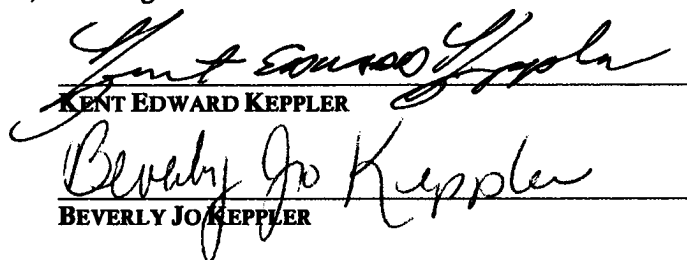 Kent Edward Keppler
KENT EDWARD KEPPLER
Beverly Jo Keppler
BEVERLY JO KEPPLER